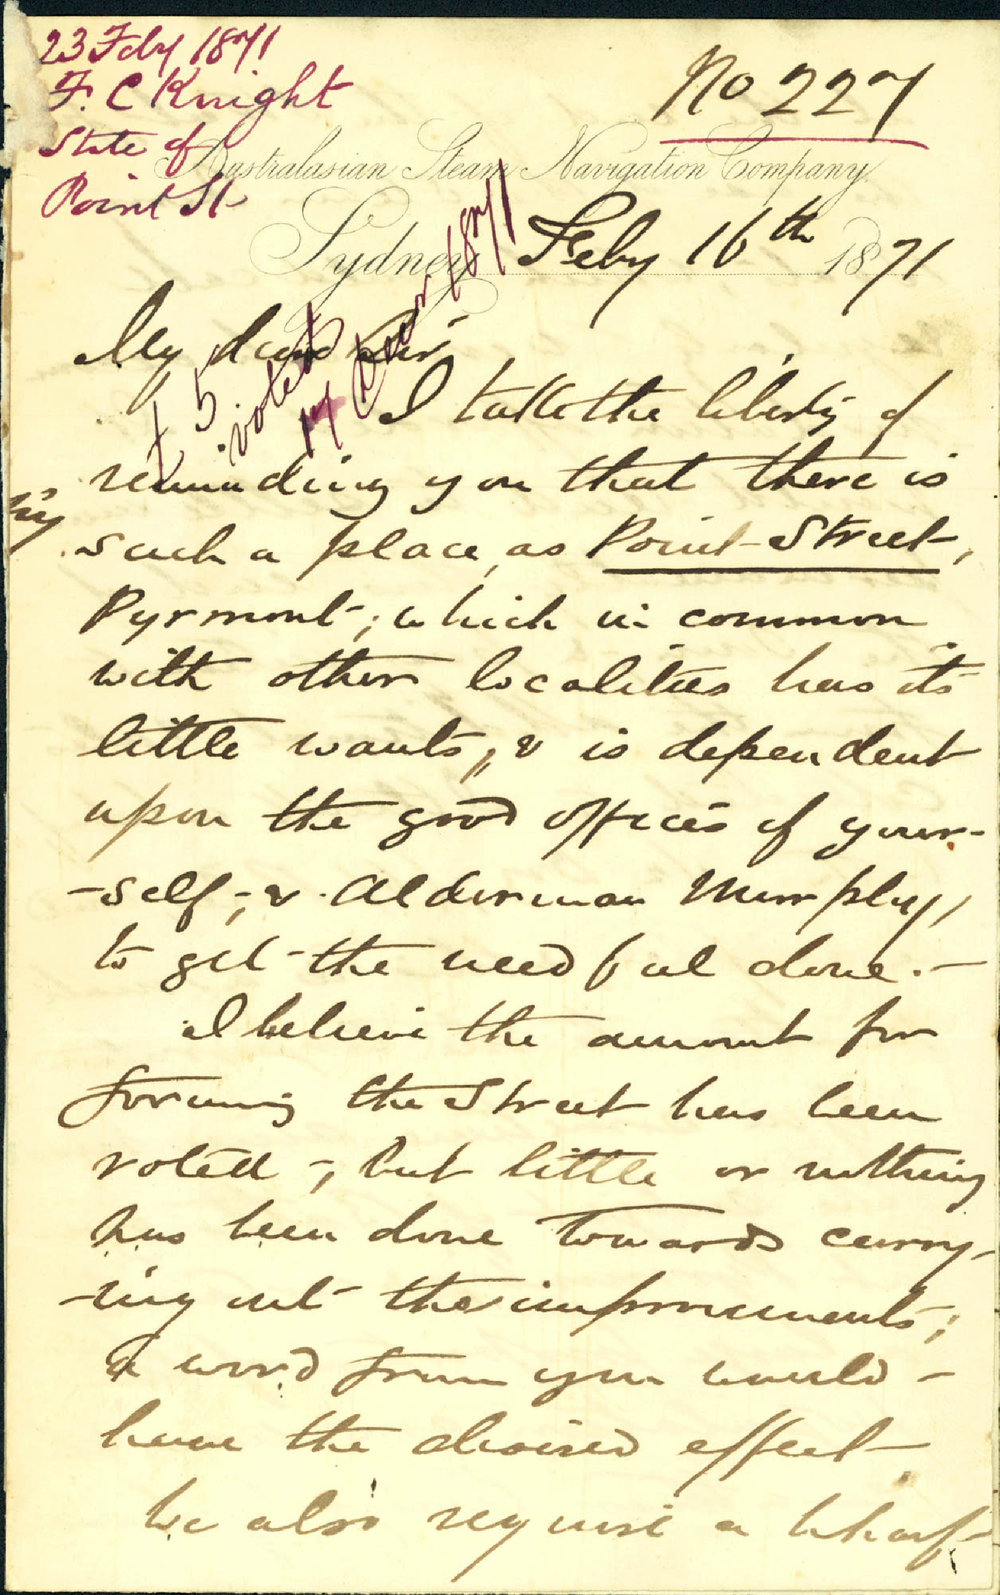 23 Feby 1871
F. C Knight
State of
Point St
No 227
Australasian Steam Navigation Company
Sydney Feby 16th 1871
£5 voted
1871
My dear Sir
I take the liberty of
reminding you that there is
such a place, as Point Street,
Pyrmont; which in common
with other localities has its
little wants, & is dependent
upon the good offices of your-
-self; & Alderman Murphy,
to get the needful done. -
I believe the amount for
forming the Street has been
voted -, but little or nothing
has been done towards carry-
-ing out the improvements;
a word from you would -
have the desired effect
We also require a wharf